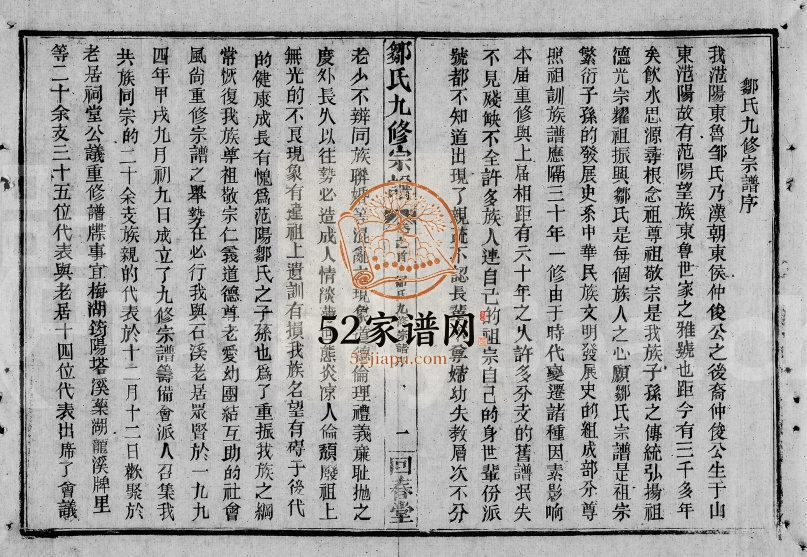 鄒氏九修宗譜序
我范陽東魯邹氏乃漢朝東侯仲俊公之後裔仲俊公生于山
東范陽故有范陽望族東魯世家之雅號也距今有三千多年
矣飲水思源尋根念祖尊祖敬宗是我族子孫之傳統弘揚祖
德光宗耀祖振興鄒氏是每個族人之心願鄒氏宗譜是祖宗
繁衍子孫的發展史系中華民族文明發展史的組成部分尊
照祖訓族譜應隔三十年一修由于時代變遷諸種因素影响
本届重修與上届相距有六十年之久許多分支的舊譜泯失
不見殘缺不全許多族人連自己的祖宗自己的身世輩份派
號都不知道出現了親疏不認長 尊婦幼失教層次不分
鄒氏九修宗譜 卷之首 鄒氏九修宗譜序 一 回春堂
老少不辨同族聯婚等混亂 現象 倫理禮義廉耻抛之
度外長久以往勢必造成人情淡薄世態炎凉人倫頹廢祖上
無光的不良現象有違祖上遺訓有損我族名望有碍于後代
的健康成長有愧爲范陽鄒氏之子孫也爲了重振我族之綱
常恢复我族尊祖敬宗仁義道德尊老愛幼團結互助的社會
風尚重修宗譜之舉勢在必行我與石溪老居眾賢於一九九
四年甲戌九月初九日成立了九修宗譜籌備會派人召集我
共族同宗的二十余支族親的代表於十二月十二日歡聚於
老居祠堂公議重修譜牒事宜梅湖筠陽塔溪藥湖龍溪牌里
等二十余支三十五位代表與老居十四位代表出席了會議
52家谱网
52jiapu.com